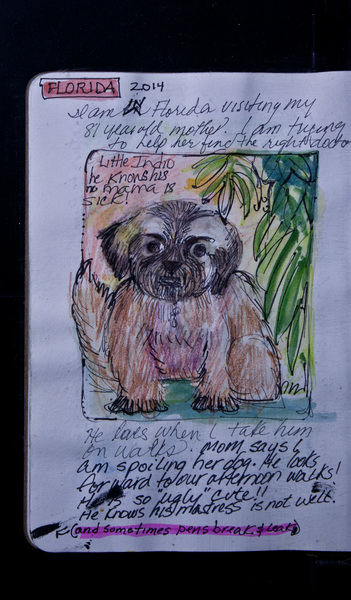 FLORIDA 2014
I am in Florida visiting my
81 year old mother. I am trying
to help her find the right doctor
Little Indio
he Knows his
mama is
SICK!
He loves when I take him
on walks. Mom says I
am spoiling her dog. He looks
forward to our afternoon walks!
He is so ugly "cute!!
He knows his mistress is not well.
(and sometimes pens break & leak)